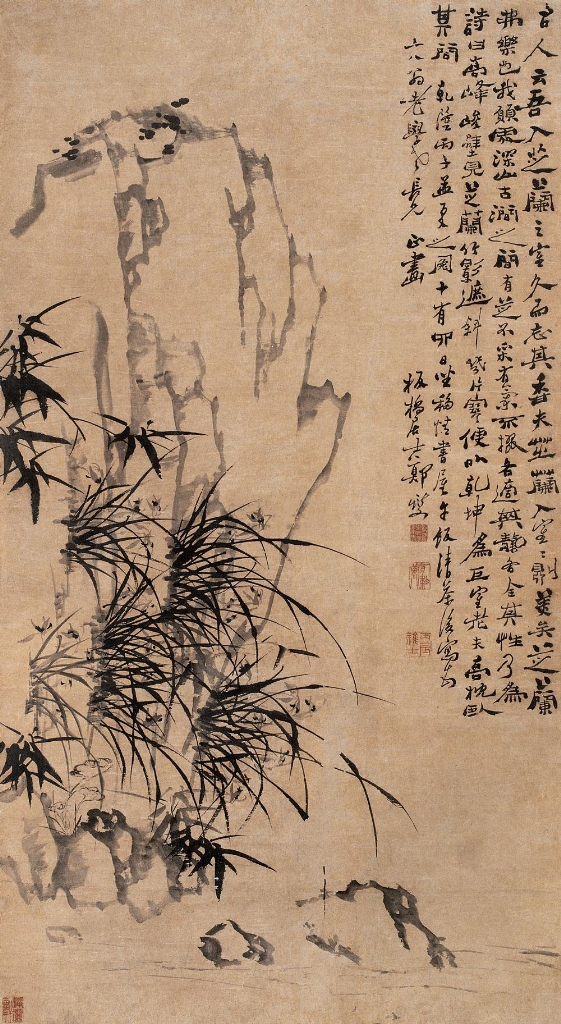 古人云吾入芝蘭之室久而忘其香夫芝蘭入室室則美矣芝蘭
弗樂也我願居深山古澗之間有芝不采有蘭不掇各適全其性乃為
詩曰高峰峻壁見芝蘭竹影遮斜幾片寒便以乾坤為巨室老夫高枕臥
其間 乾隆丙子孟夏之閏十有日坐書屋午飯清茶後寫
六翁老學長兄 正畫 板橋居士鄭燮